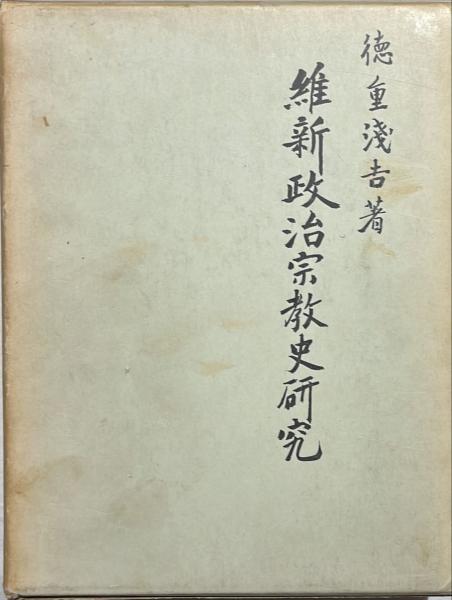 徳重淺吉著
維新政治宗教史研究